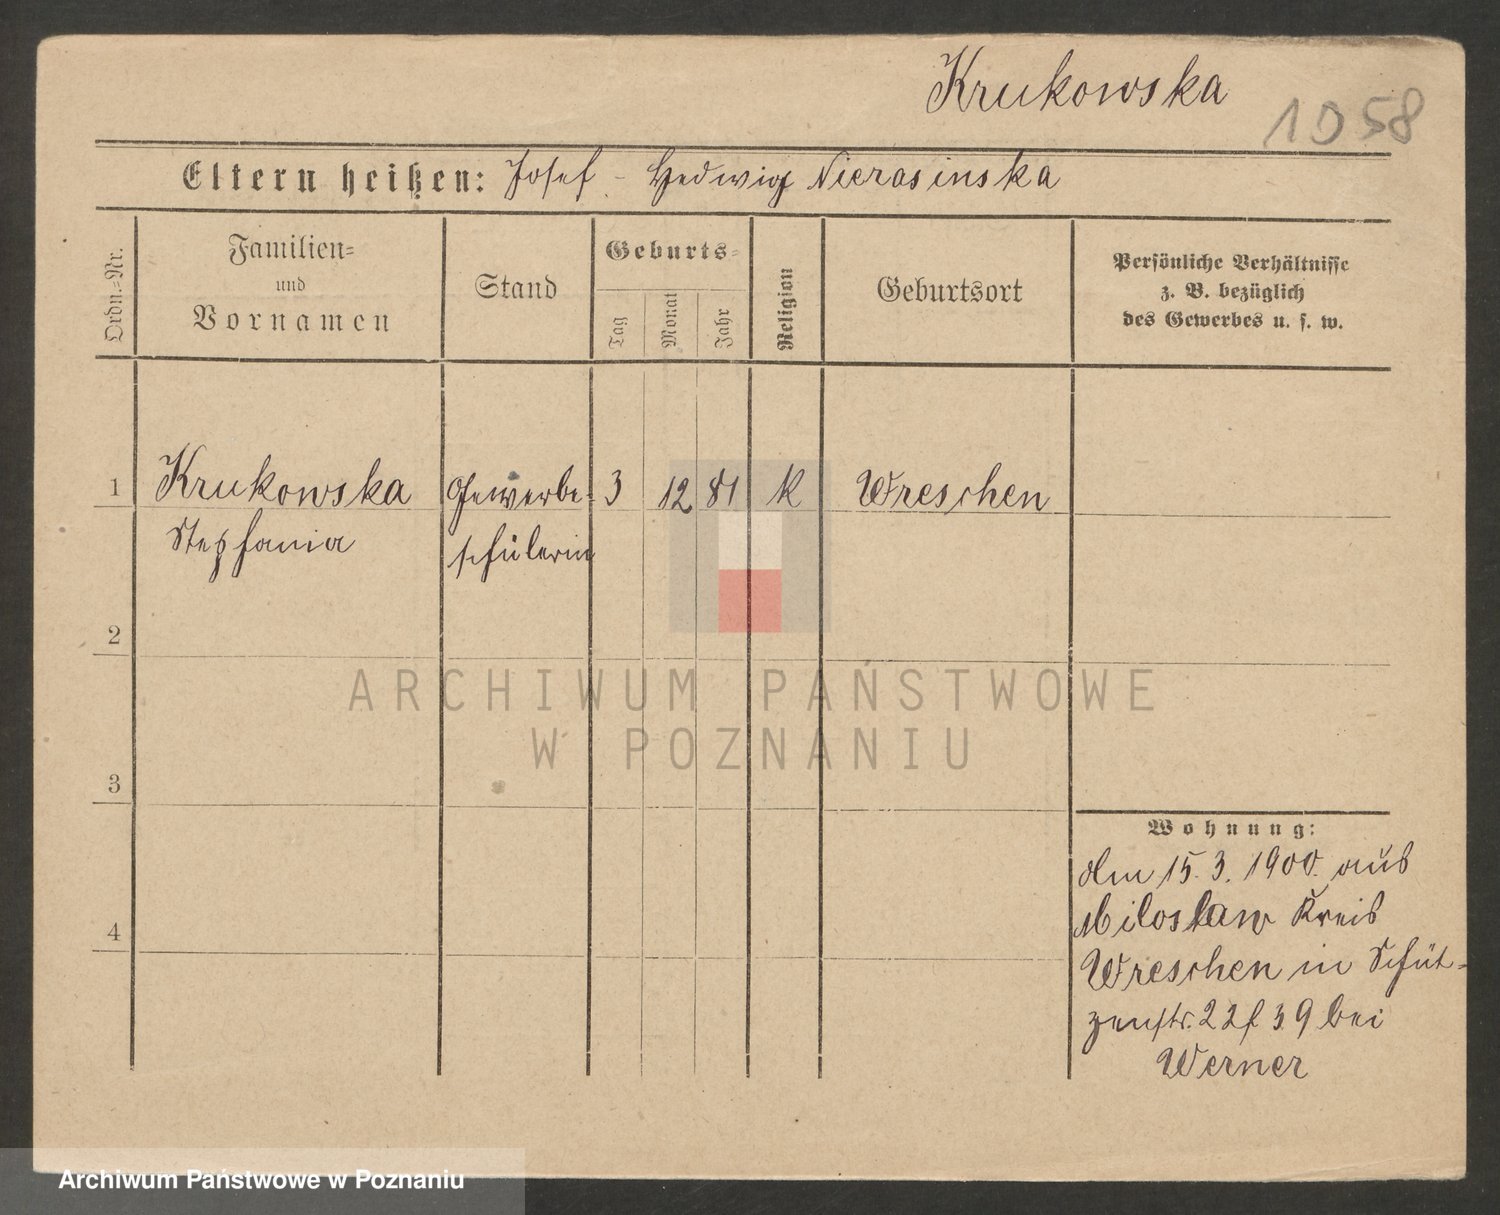 Krukowska
1058
Eltern heißen: Josef - Hedwig Nierasinska
Ordn.-Nr.
Familien-
und
Vornamen
Stand
Geburts-
Tag
Monat
Jahr
Religion
Geburtsort
Persönliche Verhältnisse
z. B. bezüglich
des Gewerbes u. s. w.
1 Krukowska Gewerbe- 3 12 81 K Wreschen
Stephania schülerin
2
3
4
Wohnung:
Am 15. 3. 1900. aus
Miloslaw Kreis
Wreschen in Schüt-
zenstr. 22 39 bei
Werner
ARCHIWUM PAŃSTWOWE
W POZNANIU
Archiwum Państwowe w Poznaniu